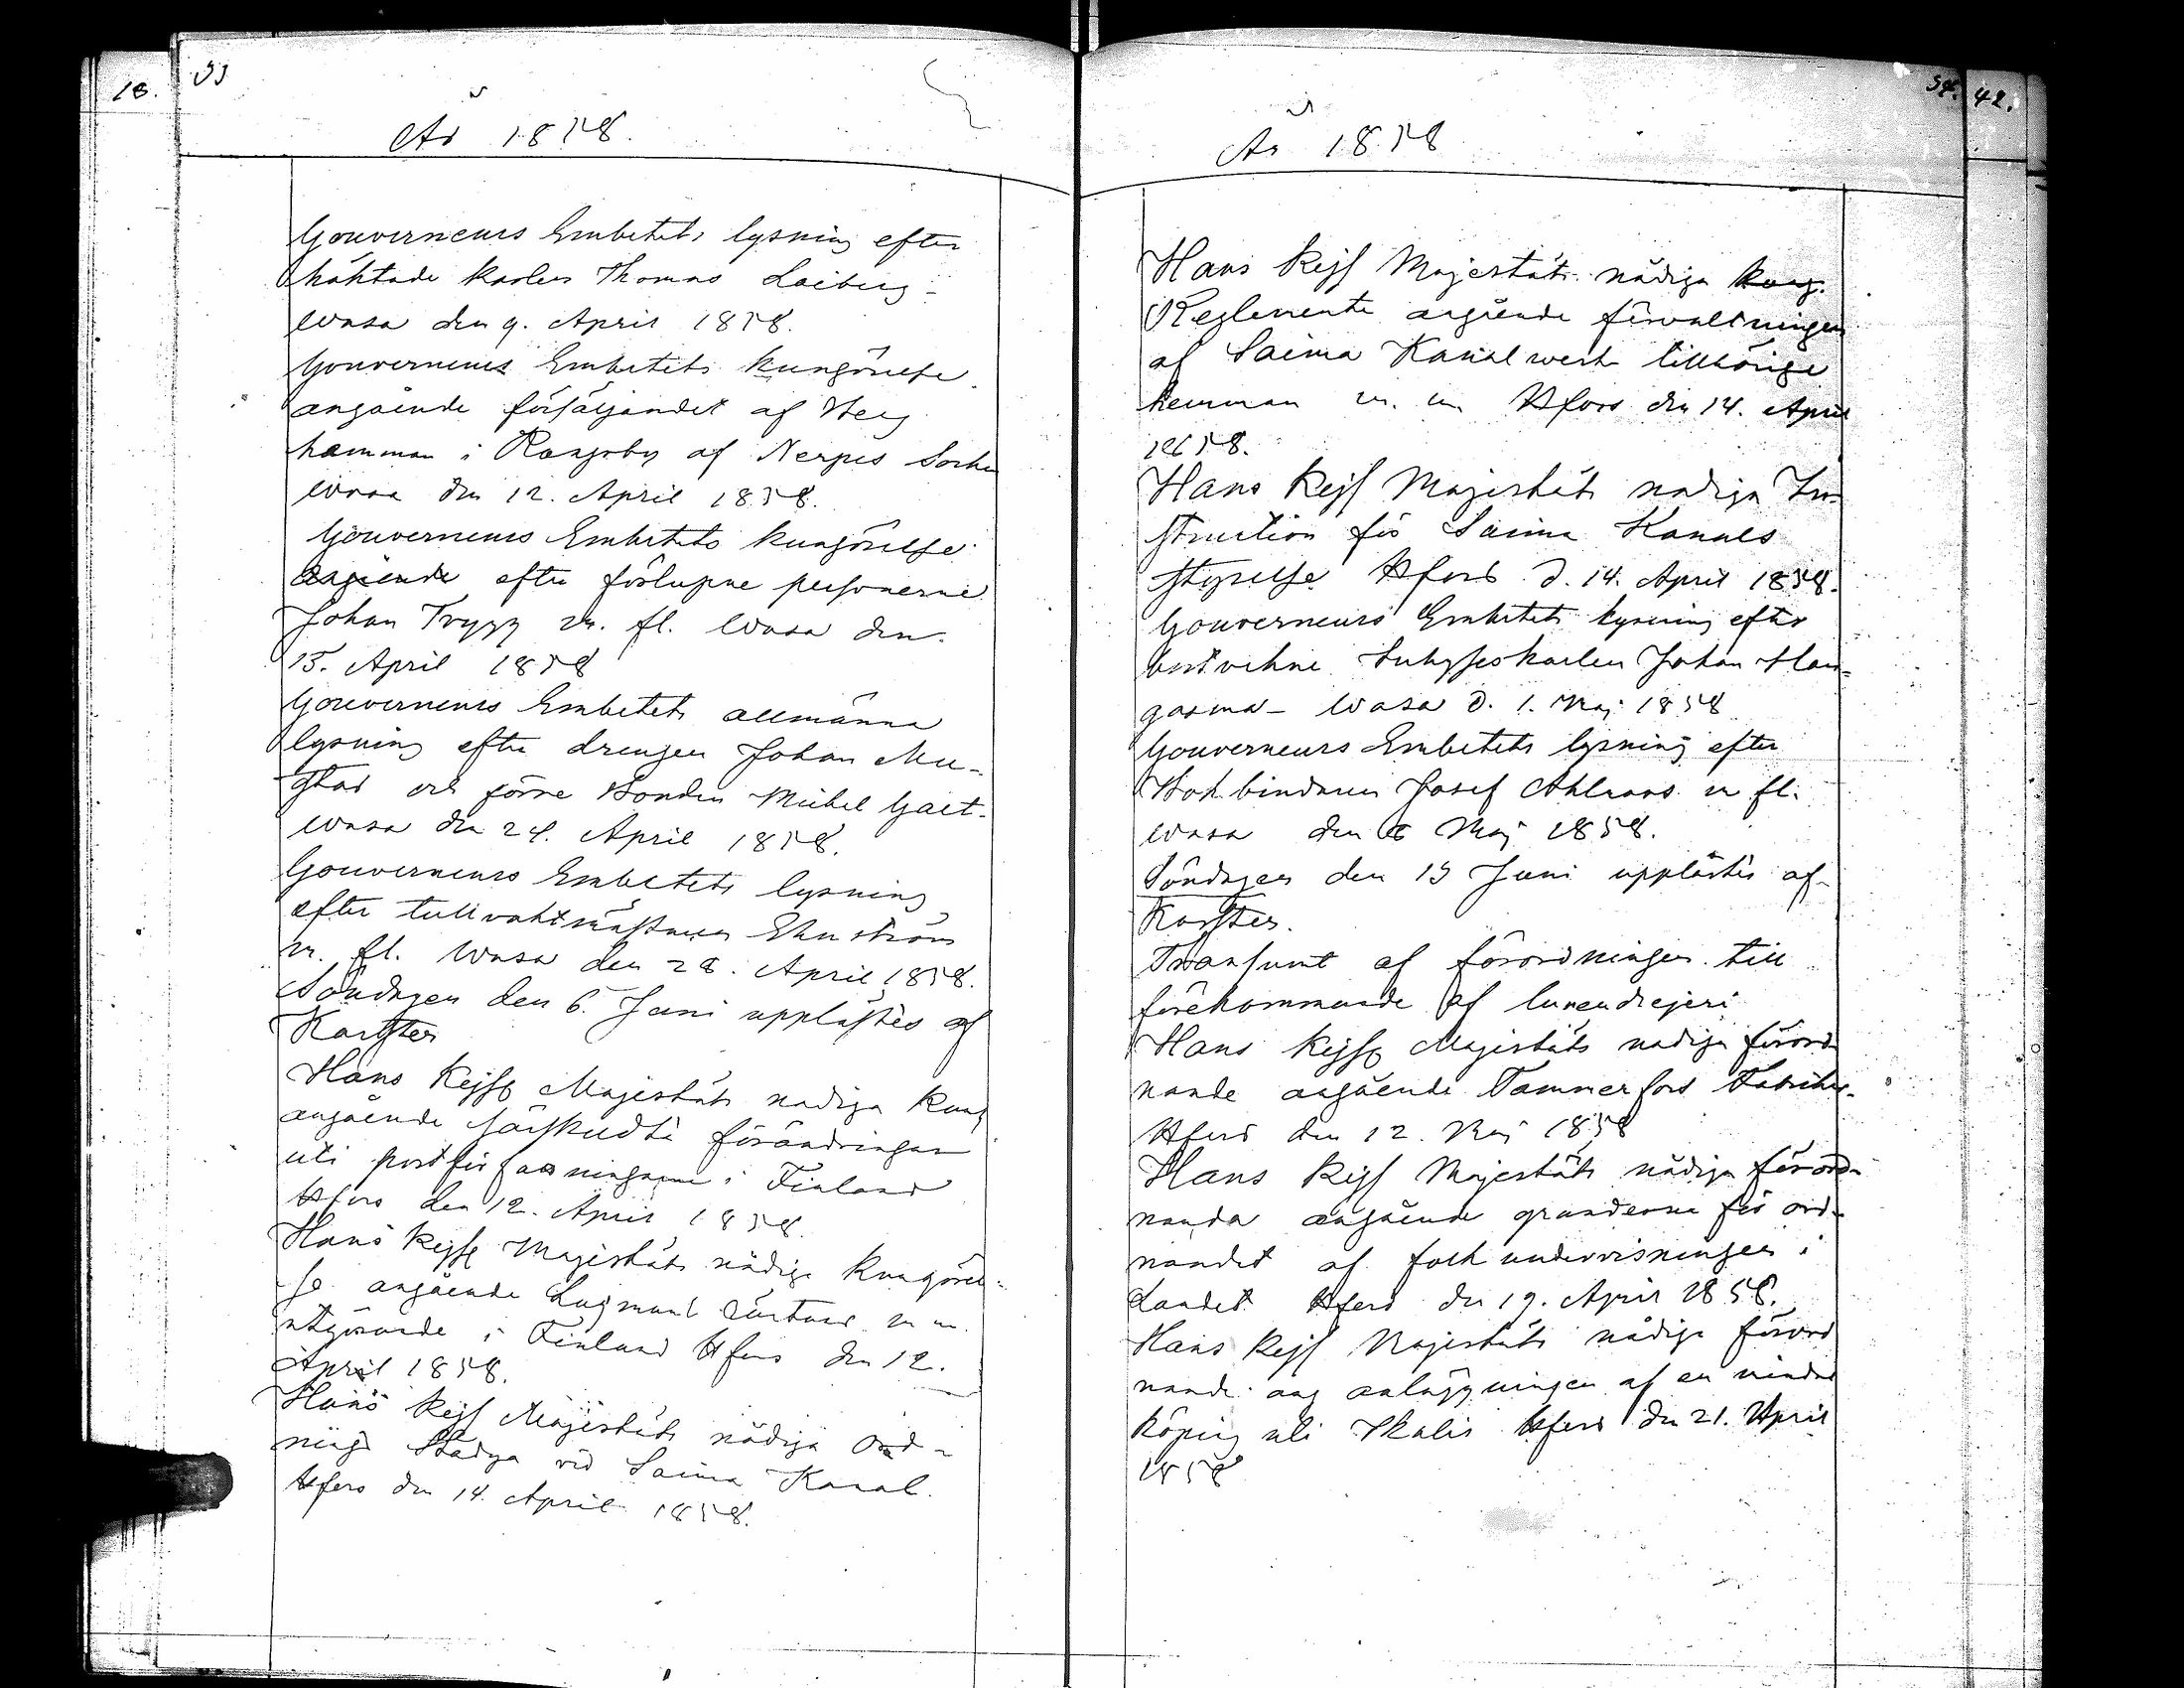 18.
33
År 1858.
Gouverneurs Embetets lysning efter
häktade karlen Thomas Laiberg
Wasa den 9. April 1858.
Gouverneurs Embetets kungörelse
angående försäljandet af Berg
hemman i Rangsby af Nerpes Socken
Wasa den 12. April 1858.
Gouverneurs Embetets kungörelse
angående efter förlupne personerne
Johan Trygg m. fl. Wasa den
15. April 1858
Gouverneurs Embetets allmänna
lysning efter drengen Johan Mu-
stas och förre Bonden Mickel Galt.
Wasa den 24. April 1858.
Gouverneurs Embetets lysning
efter tullvaktmästaren Ehnström
m. fl. Wasa den 28. April 1858.
Söndagen den 6. Juni upplästes af
Karsten
Hans Kejserl Majestäts nadiga Kung
angående särskildte förändringar
uti postförfattningarne i Finland
Hfors den 12. April 1858.
Hans Kejserl Majestäts nådiga Kungörel-
se angående Lagmans Rättens m m.
utgörande i Finland Hfors den 12.
April 1858.
Hans Kejs Majestäts nådiga Ord-
nings Stadga vid Saima Kanal.
Hfors den 14. April 1858.
34. 42.
År 1858
Hans Kejs Majestäts nådiga kung.
Reglemente angående förvaltningen
af Saima Kanalwerk tillhörige
hemman m. m. Hfors den 14. April
1858.
Hans Kejs Majestäts nadiga In-
struction för Saima Kanals
styrelse Hfors d. 14. April 1858.
Gouverneurs Embetets lysning efter
bortvikne Inhyseskarlen Johan Han-
gasma- Wasa d. 1. Maj 1858
Gouverneurs Embetets lysning efter
Bokbindaren Josef Ahlroos m fl.
Wasa den 6 Maj 1858.
Söndagen den 13 Juni upplästes af
Karsten.
Transumt af förordningen till
förekommande af lurendrejeri
Hans Kejserl Majestäts nadiga förord
nande angående Tammerfors Fabriker.
Hfors den 12. Maj 1858
Hans Kejs Majestäts nådiga förord-
nande angående grunderne för ord-
nandet af folkundervisningen i
Landet Hfors den 19. April 1858.
Hans Kejs Majestäts nådiga förord
nande ang anläggningen af en mindre
köping uti Ikalis Hfors den 21. April
1858